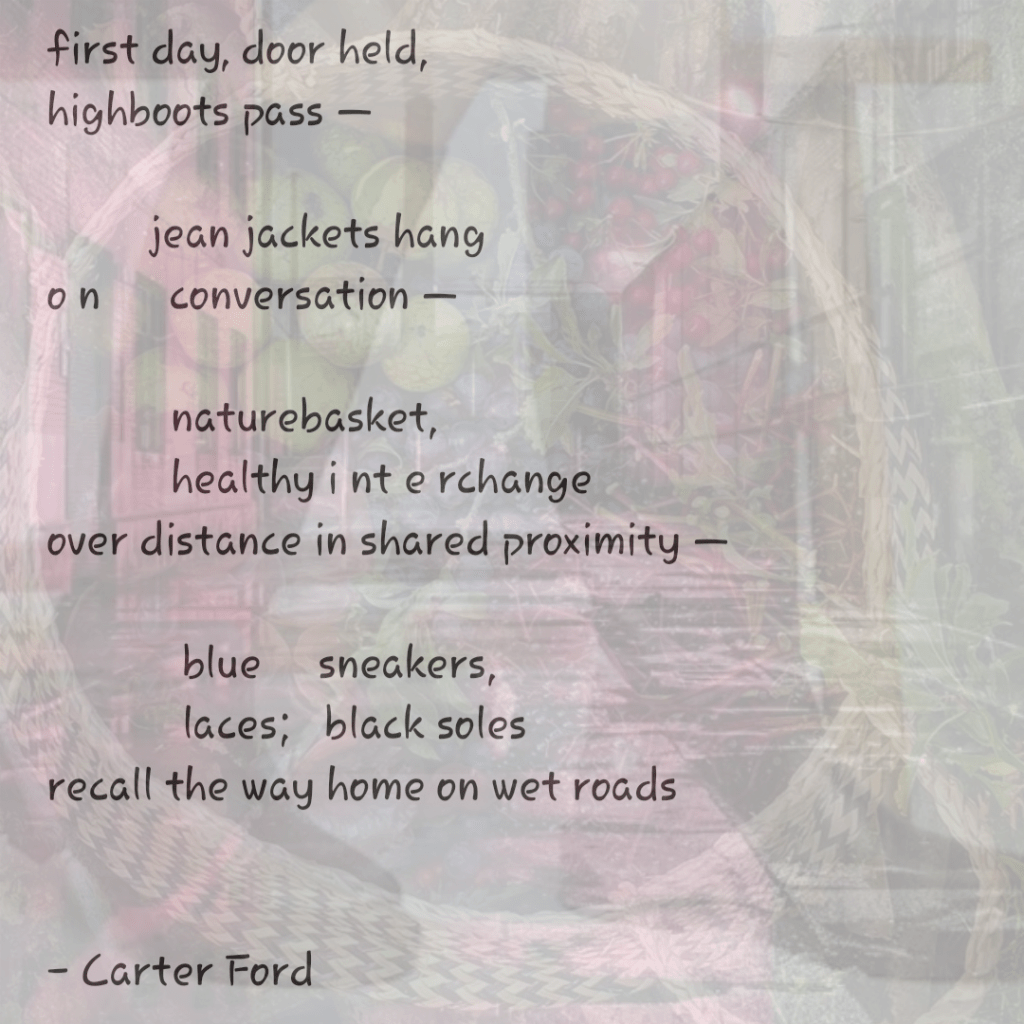 first day, door held,
highboots pass —
jean jackets hang
o n conversation —
naturebasket,
healthy i nt e rchange
over distance in shared proximity —
blue sneakers,
laces; black soles
recall the way home on wet roads
- Carter Ford